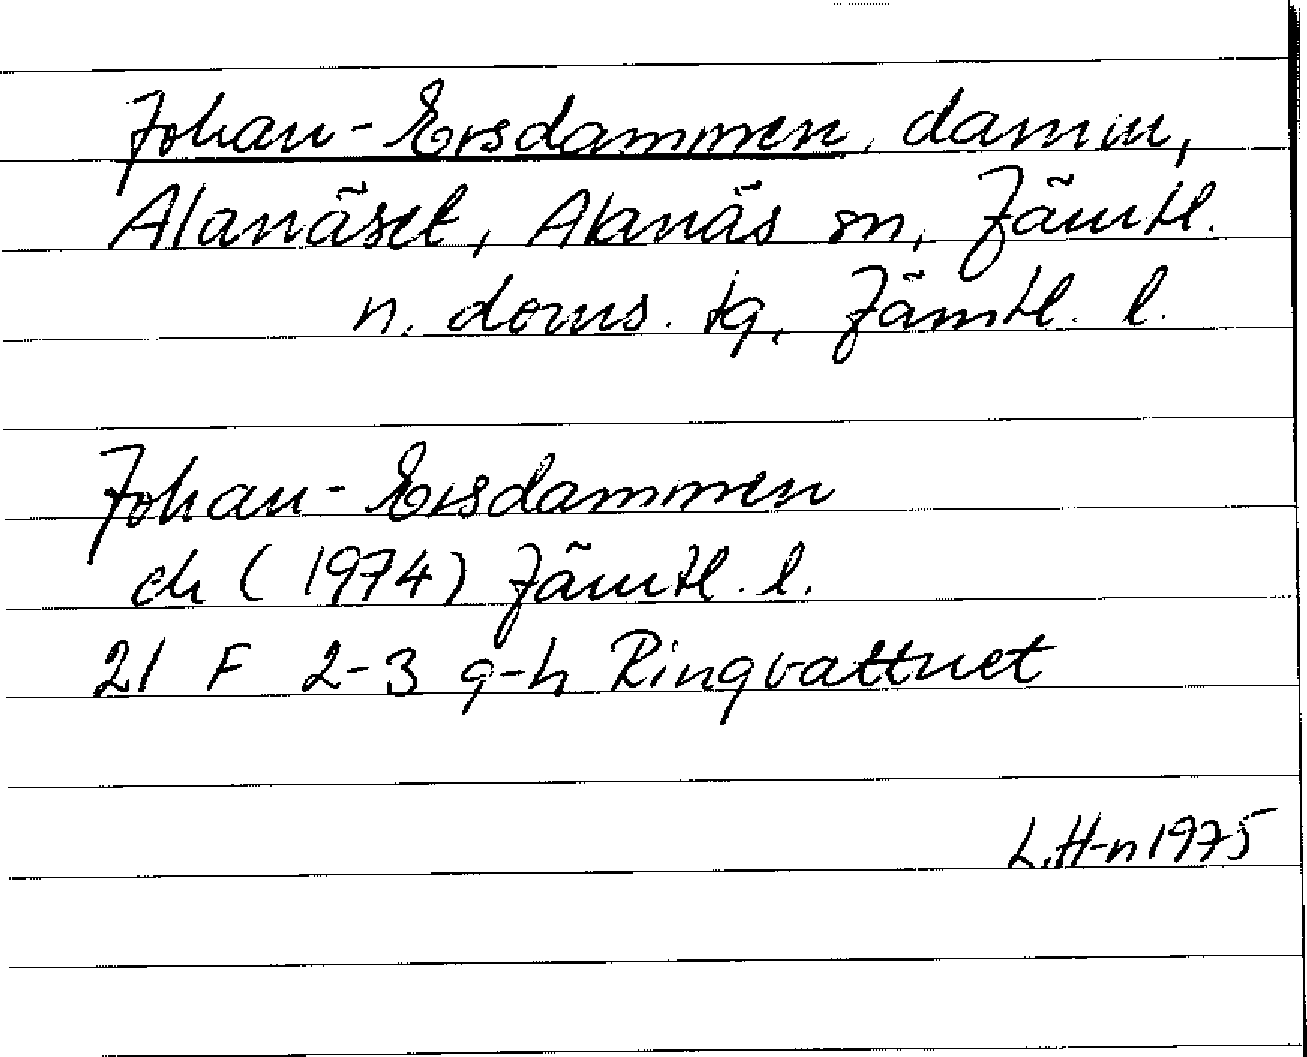 Johan-Ersdammen, damm,
Alanäset, Alanäs sn, Jämtl.
n. doms. tg, Jämtl. l.
Johan-Ersdammen
ek (1974) Jämtl. l.
21 F 2-3 g-h Ringvattnet
L.H-n 1975